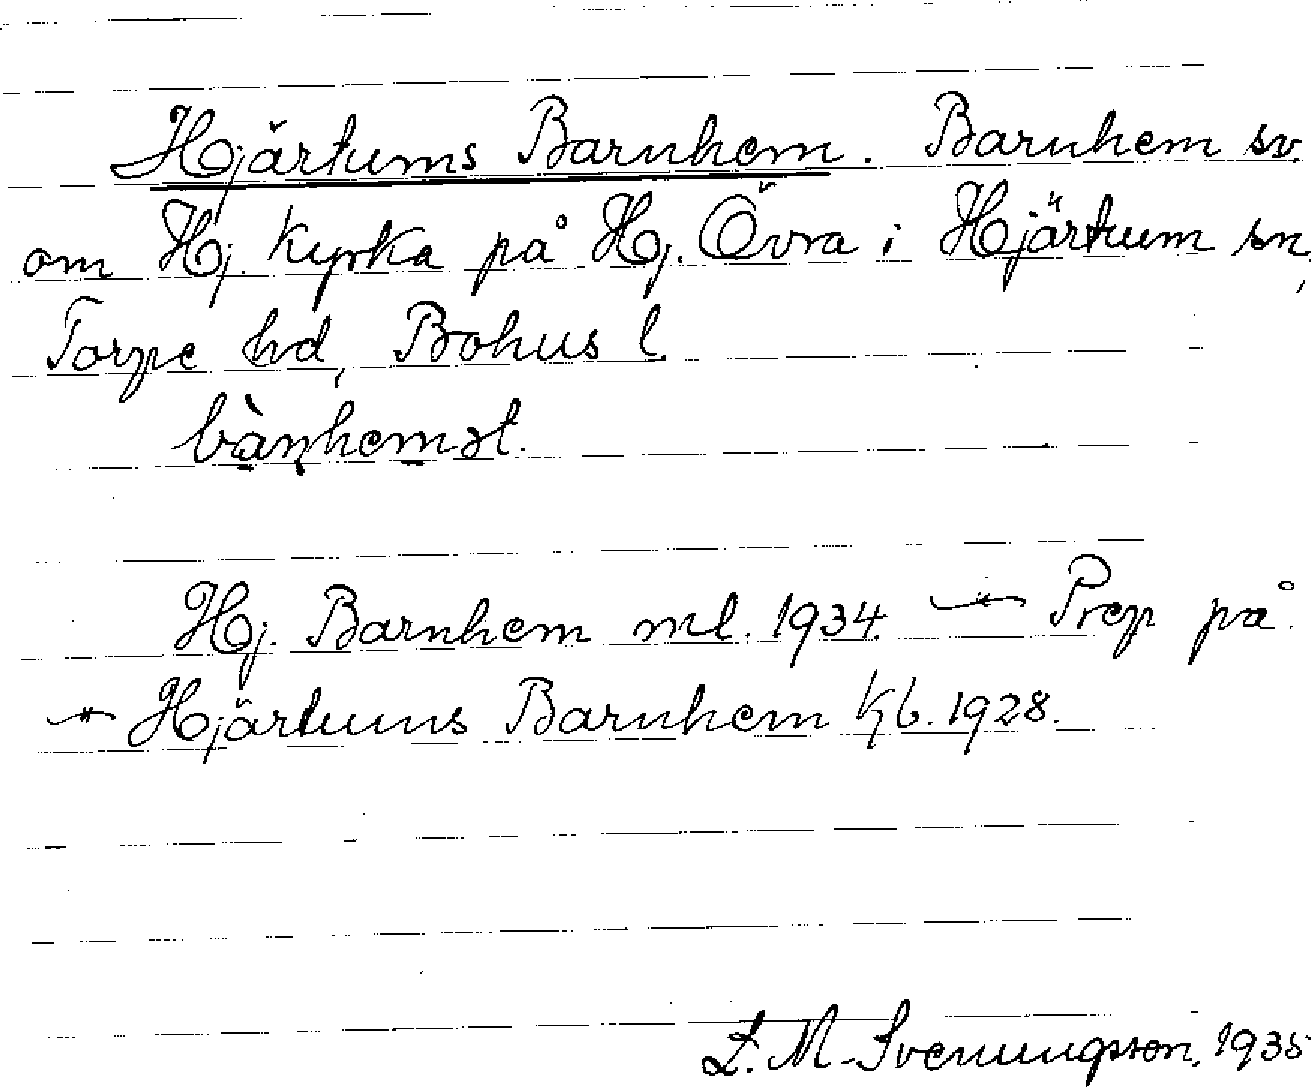 Hjärtums Barnhem. Barnhem sv.
om Hj. Kyrka på Hj. Övra i Hjärtum sn,
Torpe hd, Bohus l.
bànhemət.
Hj. Barnhem ml. 1934. Prep på
Hjärtums Barnhem Kb. 1928.
L. M. Svenungsson, 1935